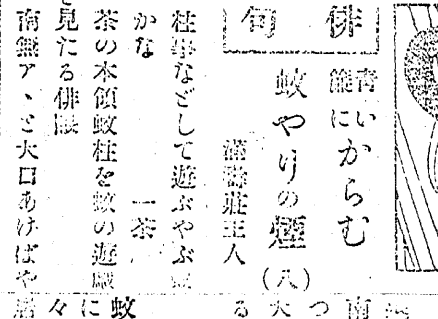 俳句
青い
に
からむ
蚊やりの煙 (八)
莊主人
柱事などして遊ぶやぶ蚊
かな 一茶
茶の本領蚊柱を蚊の遊戯
と見たる俳眼
南無アヽと大口あけばや
南つ大る
蚊に々